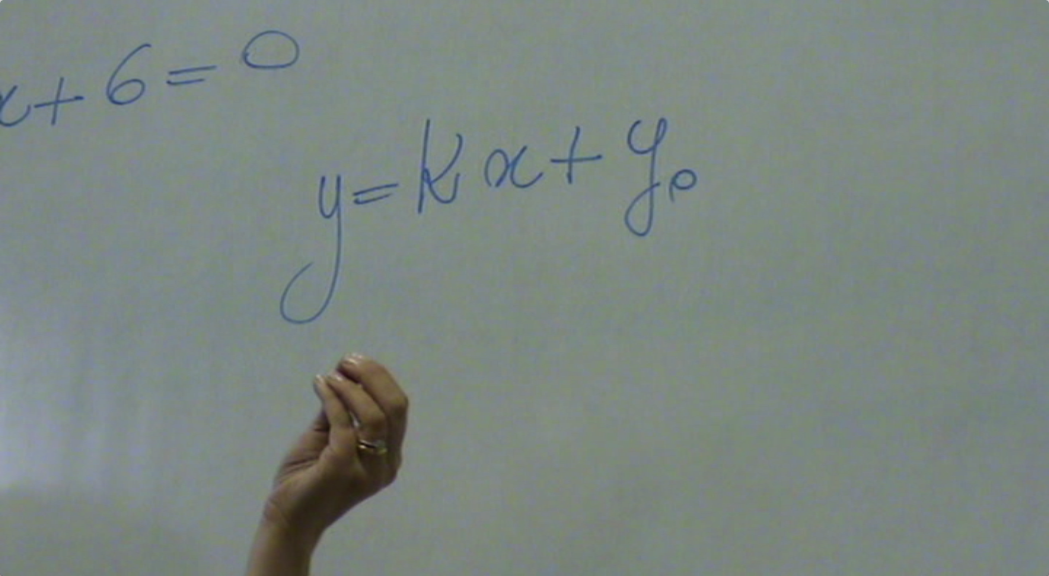 x+6=0
y=kx+y₀